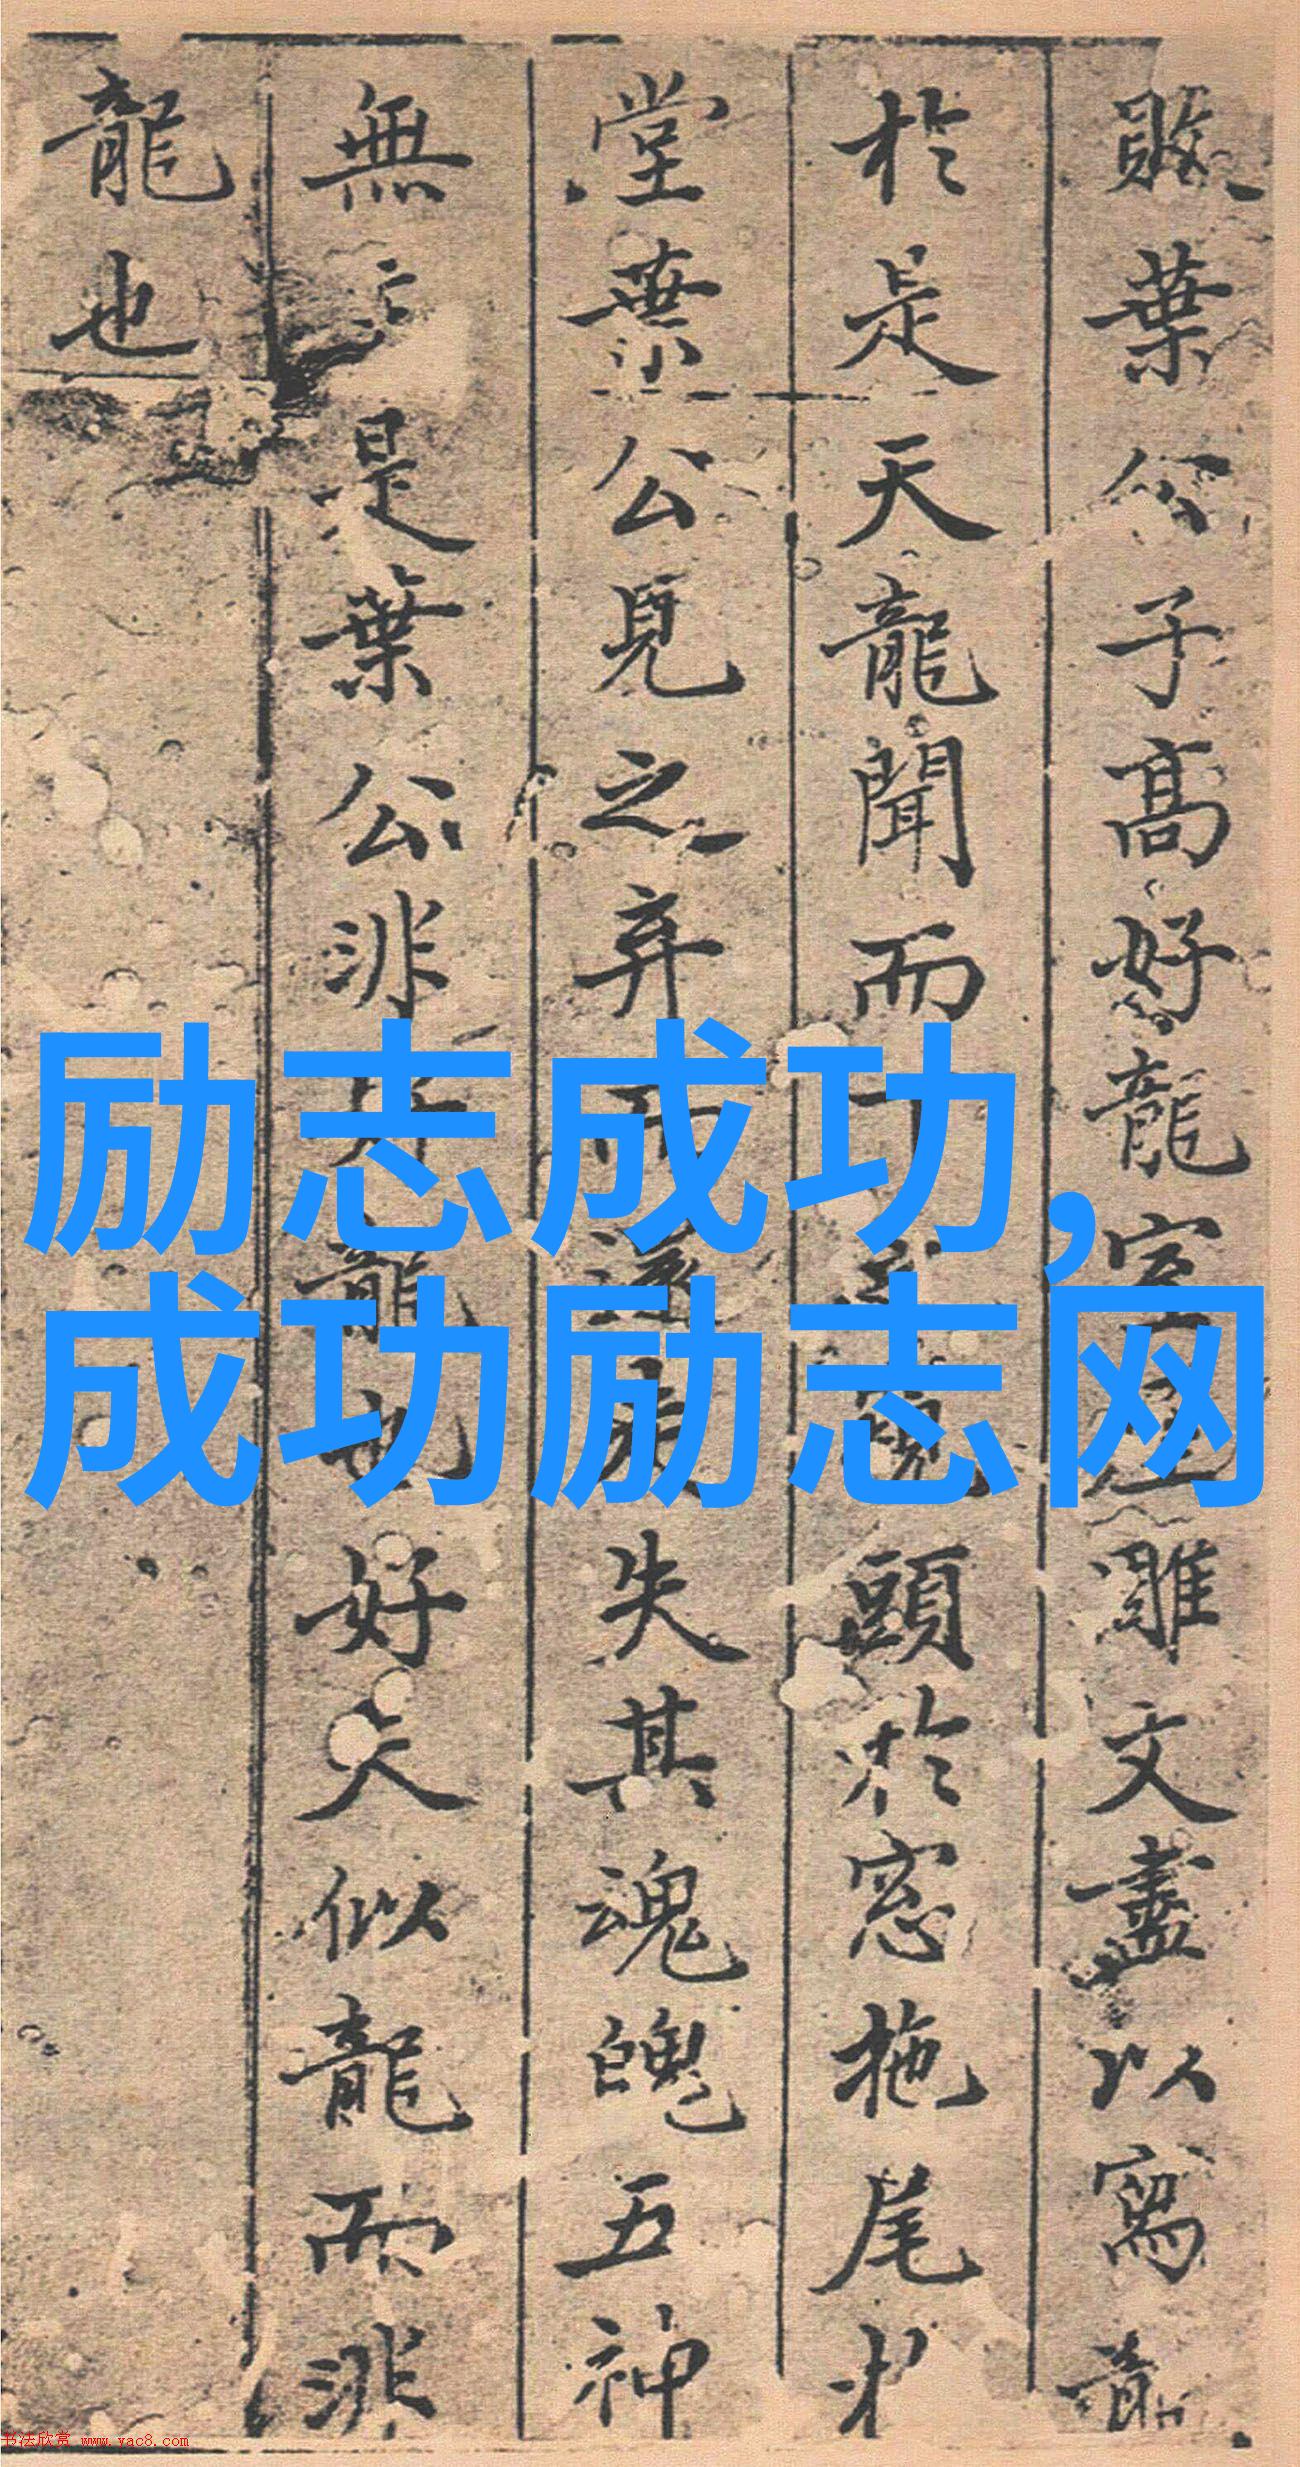 殹葉公子高好龍室屋雕文盡以寫龍
於是天龍聞而下窺頭於窓拖尾於
堂葉公見之弃而還走失其魂魄五神
無主是葉公非好龍也好夫似龍而非
龍也
励志成功,
成功励志网
书法欣赏 www.yac8.com